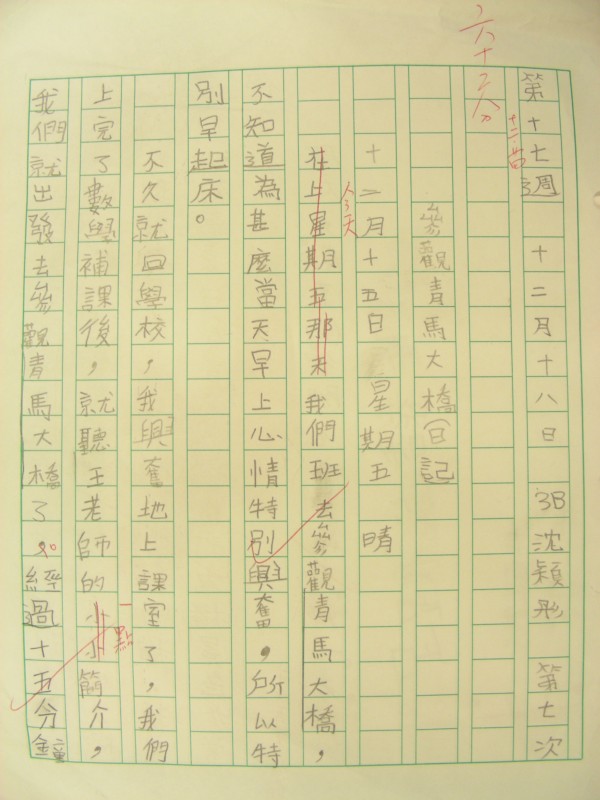 第十七週 十二月十八日 3B 沈穎彤 第七次
六十三分
參觀青馬大橋(日記)
十二月十五日 星期五 晴
今天
在上星期五那天我們班去參觀青馬大橋，
不知道為甚麼當天早上心情特別興奮，所以特
別早起床。
不久就回學校，我興奮地上課室了，我們
上完了數學補課後，就聽王老師的小小簡介，
一點
我們就出發去參觀青馬大橋了，經過十五分鐘